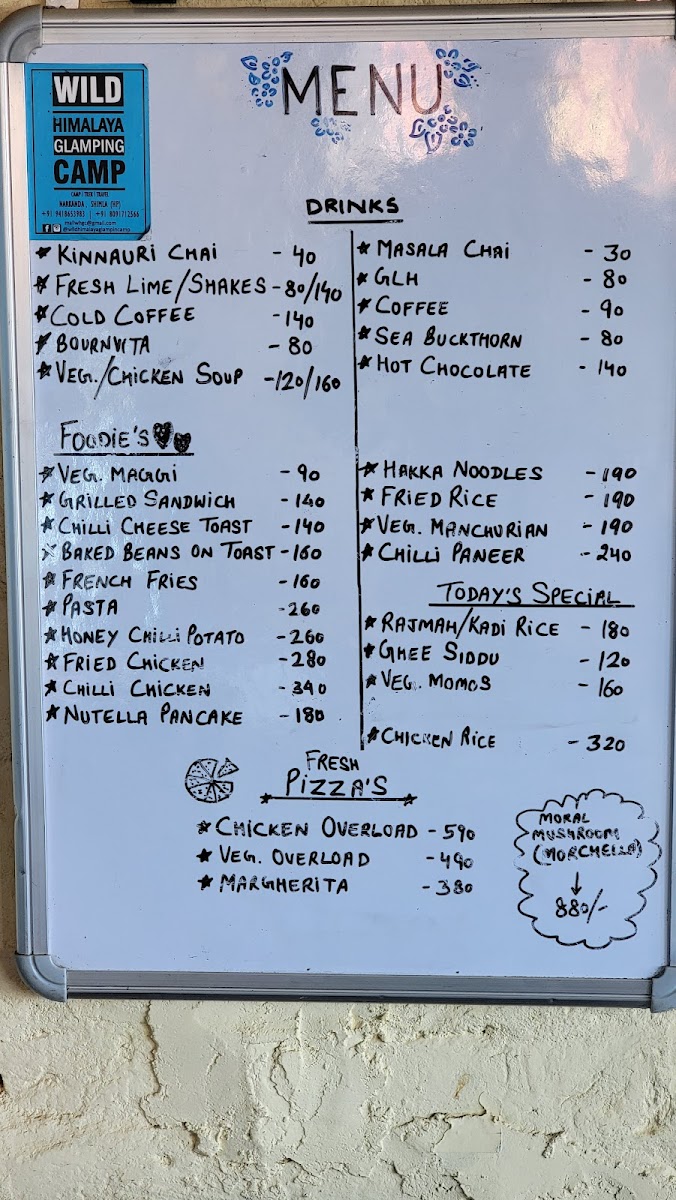 WILD
HIMALAYA
GLAMPING
CAMP
CAMP | TREK | TRAVEL
NARKANDA, SHIMLA (HP)
+91 9418653983 | +91 8091712566
mailwhgc@gmail.com
@wildhimalayaglampincamp
MENU
DRINKS
KINNAURI CHAI - 40
FRESH LIME/SHAKES - 80/140
COLD COFFEE - 140
BOURNVITA - 80
VEG./CHICKEN SOUP - 120/160
MASALA CHAI - 30
GLH - 80
COFFEE - 90
SEA BUCKTHORN - 80
HOT CHOCOLATE - 140
FOODIE'S
VEG. MAGGI - 90
GRILLED SANDWICH - 140
CHILLI CHEESE TOAST - 140
BAKED BEANS ON TOAST - 160
FRENCH FRIES - 160
PASTA - 260
HONEY CHILLI POTATO - 260
FRIED CHICKEN - 280
CHILLI CHICKEN - 340
NUTELLA PANCAKE - 180
HAKKA NOODLES - 190
FRIED RICE - 190
VEG. MANCHURIAN - 190
CHILLI PANEER - 240
TODAY'S SPECIAL
RAJMAH/KADI RICE - 180
GHEE SIDDU - 120
VEG. MOMOS - 160
CHICKEN RICE - 320
FRESH
PIZZA'S
CHICKEN OVERLOAD - 590
VEG. OVERLOAD - 490
MARGHERITA - 380
MORAL
MUSHROOM
(MORCHELLA)
880/-